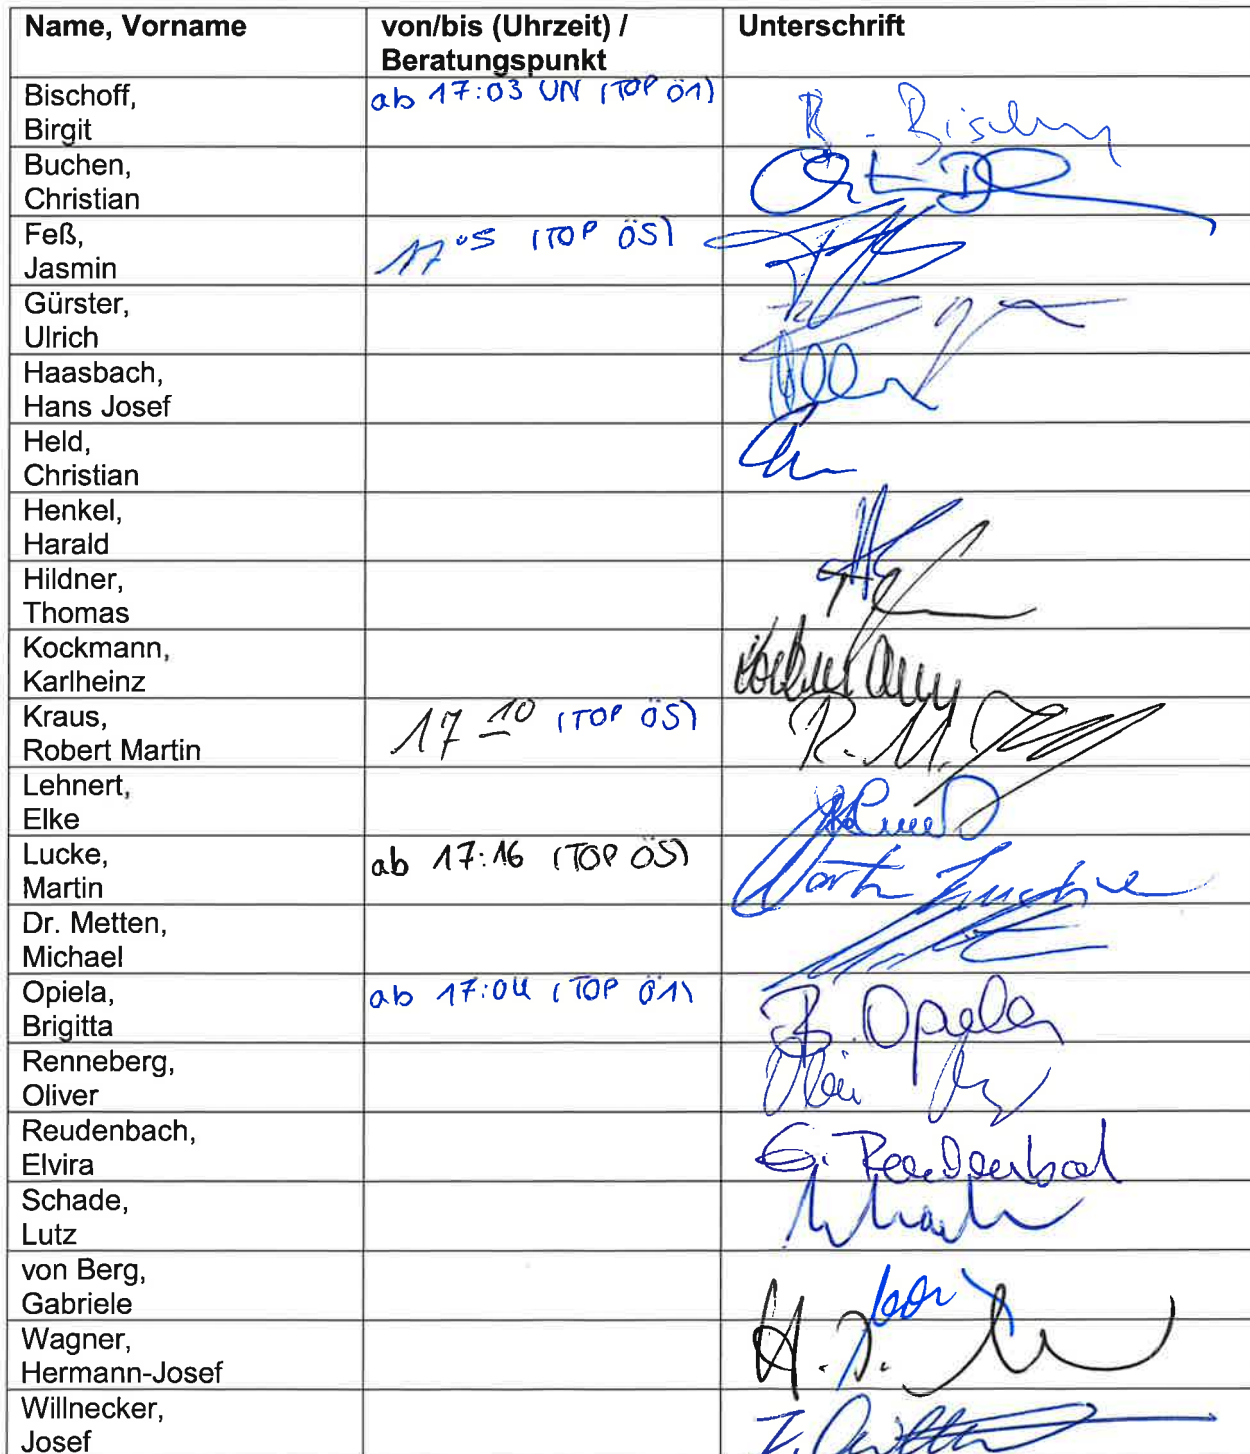 Name, Vorname
von/bis (Uhrzeit) /
Beratungspunkt
Unterschrift
Bischoff,
Birgit
ab 17:03 UN (TOP Ö1)
B. Bischoff
Buchen,
Christian
Feß,
Jasmin
17 05 (TOP Ö5)
Gürster,
Ulrich
Haasbach,
Hans Josef
Held,
Christian
Henkel,
Harald
Hildner,
Thomas
Kockmann,
Karlheinz
Kraus,
Robert Martin
17 10 (TOP Ö5)
R. M.
Lehnert,
Elke
Lucke,
Martin
ab 17:16 (TOP Ö5)
Martin Lucke
Dr. Metten,
Michael
Opiela,
Brigitta
ab 17:04 (TOP Ö1)
B. Opiela
Renneberg,
Oliver
Reudenbach,
Elvira
E. Reudenbach
Schade,
Lutz
von Berg,
Gabriele
Wagner,
Hermann-Josef
H. J.
Willnecker,
Josef